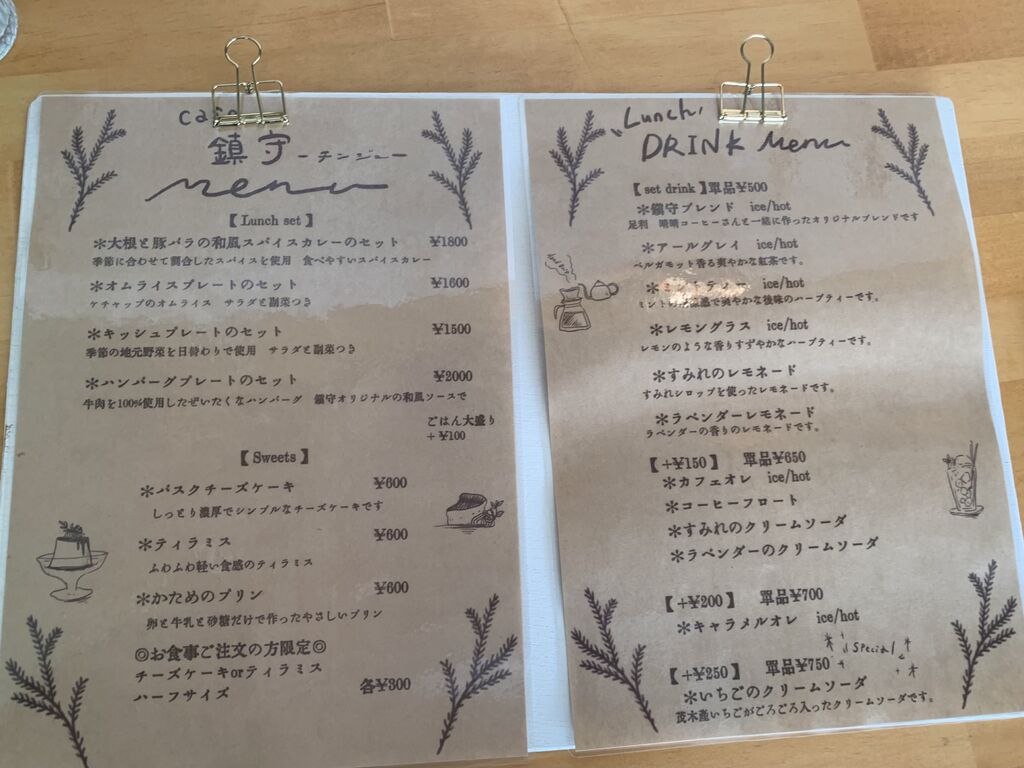 cafe
鎮守 ーチンジューー
menu
【 Lunch set 】
＊大根と豚バラの和風スパイスカレーのセット ¥1800
季節に合わせて調合したスパイスを使用 食べやすいスパイスカレー
＊オムライスプレートのセット ¥1600
ケチャップのオムライス サラダと副菜つき
＊キッシュプレートのセット ¥1500
季節の地元野菜を日替わりで使用 サラダと副菜つき
＊ハンバーグプレートのセット ¥2000
牛肉を100%使用したぜいたくなハンバーグ 鎮守オリジナルの和風ソースで
ごはん大盛り
+¥100
【 Sweets 】
＊バスクチーズケーキ ¥600
しっとり濃厚でシンプルなチーズケーキです
＊ティラミス ¥600
ふわふわ軽い食感のティラミス
＊かためのプリン ¥600
卵と牛乳と砂糖だけで作ったやさしいプリン
◎お食事ご注文の方限定◎
チーズケーキorティラミス
ハーフサイズ 各¥300
Lunch,
DRINK Menu
【 set drink 】單品¥500
＊鎮守ブレンド ice/hot
足利 晴晴コーヒーさんと一緒に作ったオリジナルブレンドです
＊アールグレイ ice/hot
ベルガモット香る爽やかな紅茶です。
＊ミントティー ice/hot
ミントの清涼感で爽やかな後味のハーブティーです。
＊レモングラス ice/hot
レモンのような香りすずやかなハーブティーです。
＊すみれのレモネード
すみれシロップを使ったレモネードです。
＊ラベンダーレモネード
ラベンダーの香りのレモネードです。
【 +¥150 】 單品¥650
＊カフェオレ ice/hot
＊コーヒーフロート
＊すみれのクリームソーダ
＊ラベンダーのクリームソーダ
【 +¥200 】 單品¥700
＊キャラメルオレ ice/hot
special
【 +¥250 】 單品¥750
＊いちごのクリームソーダ
茂木産いちごがごろごろ入ったクリームソーダです。